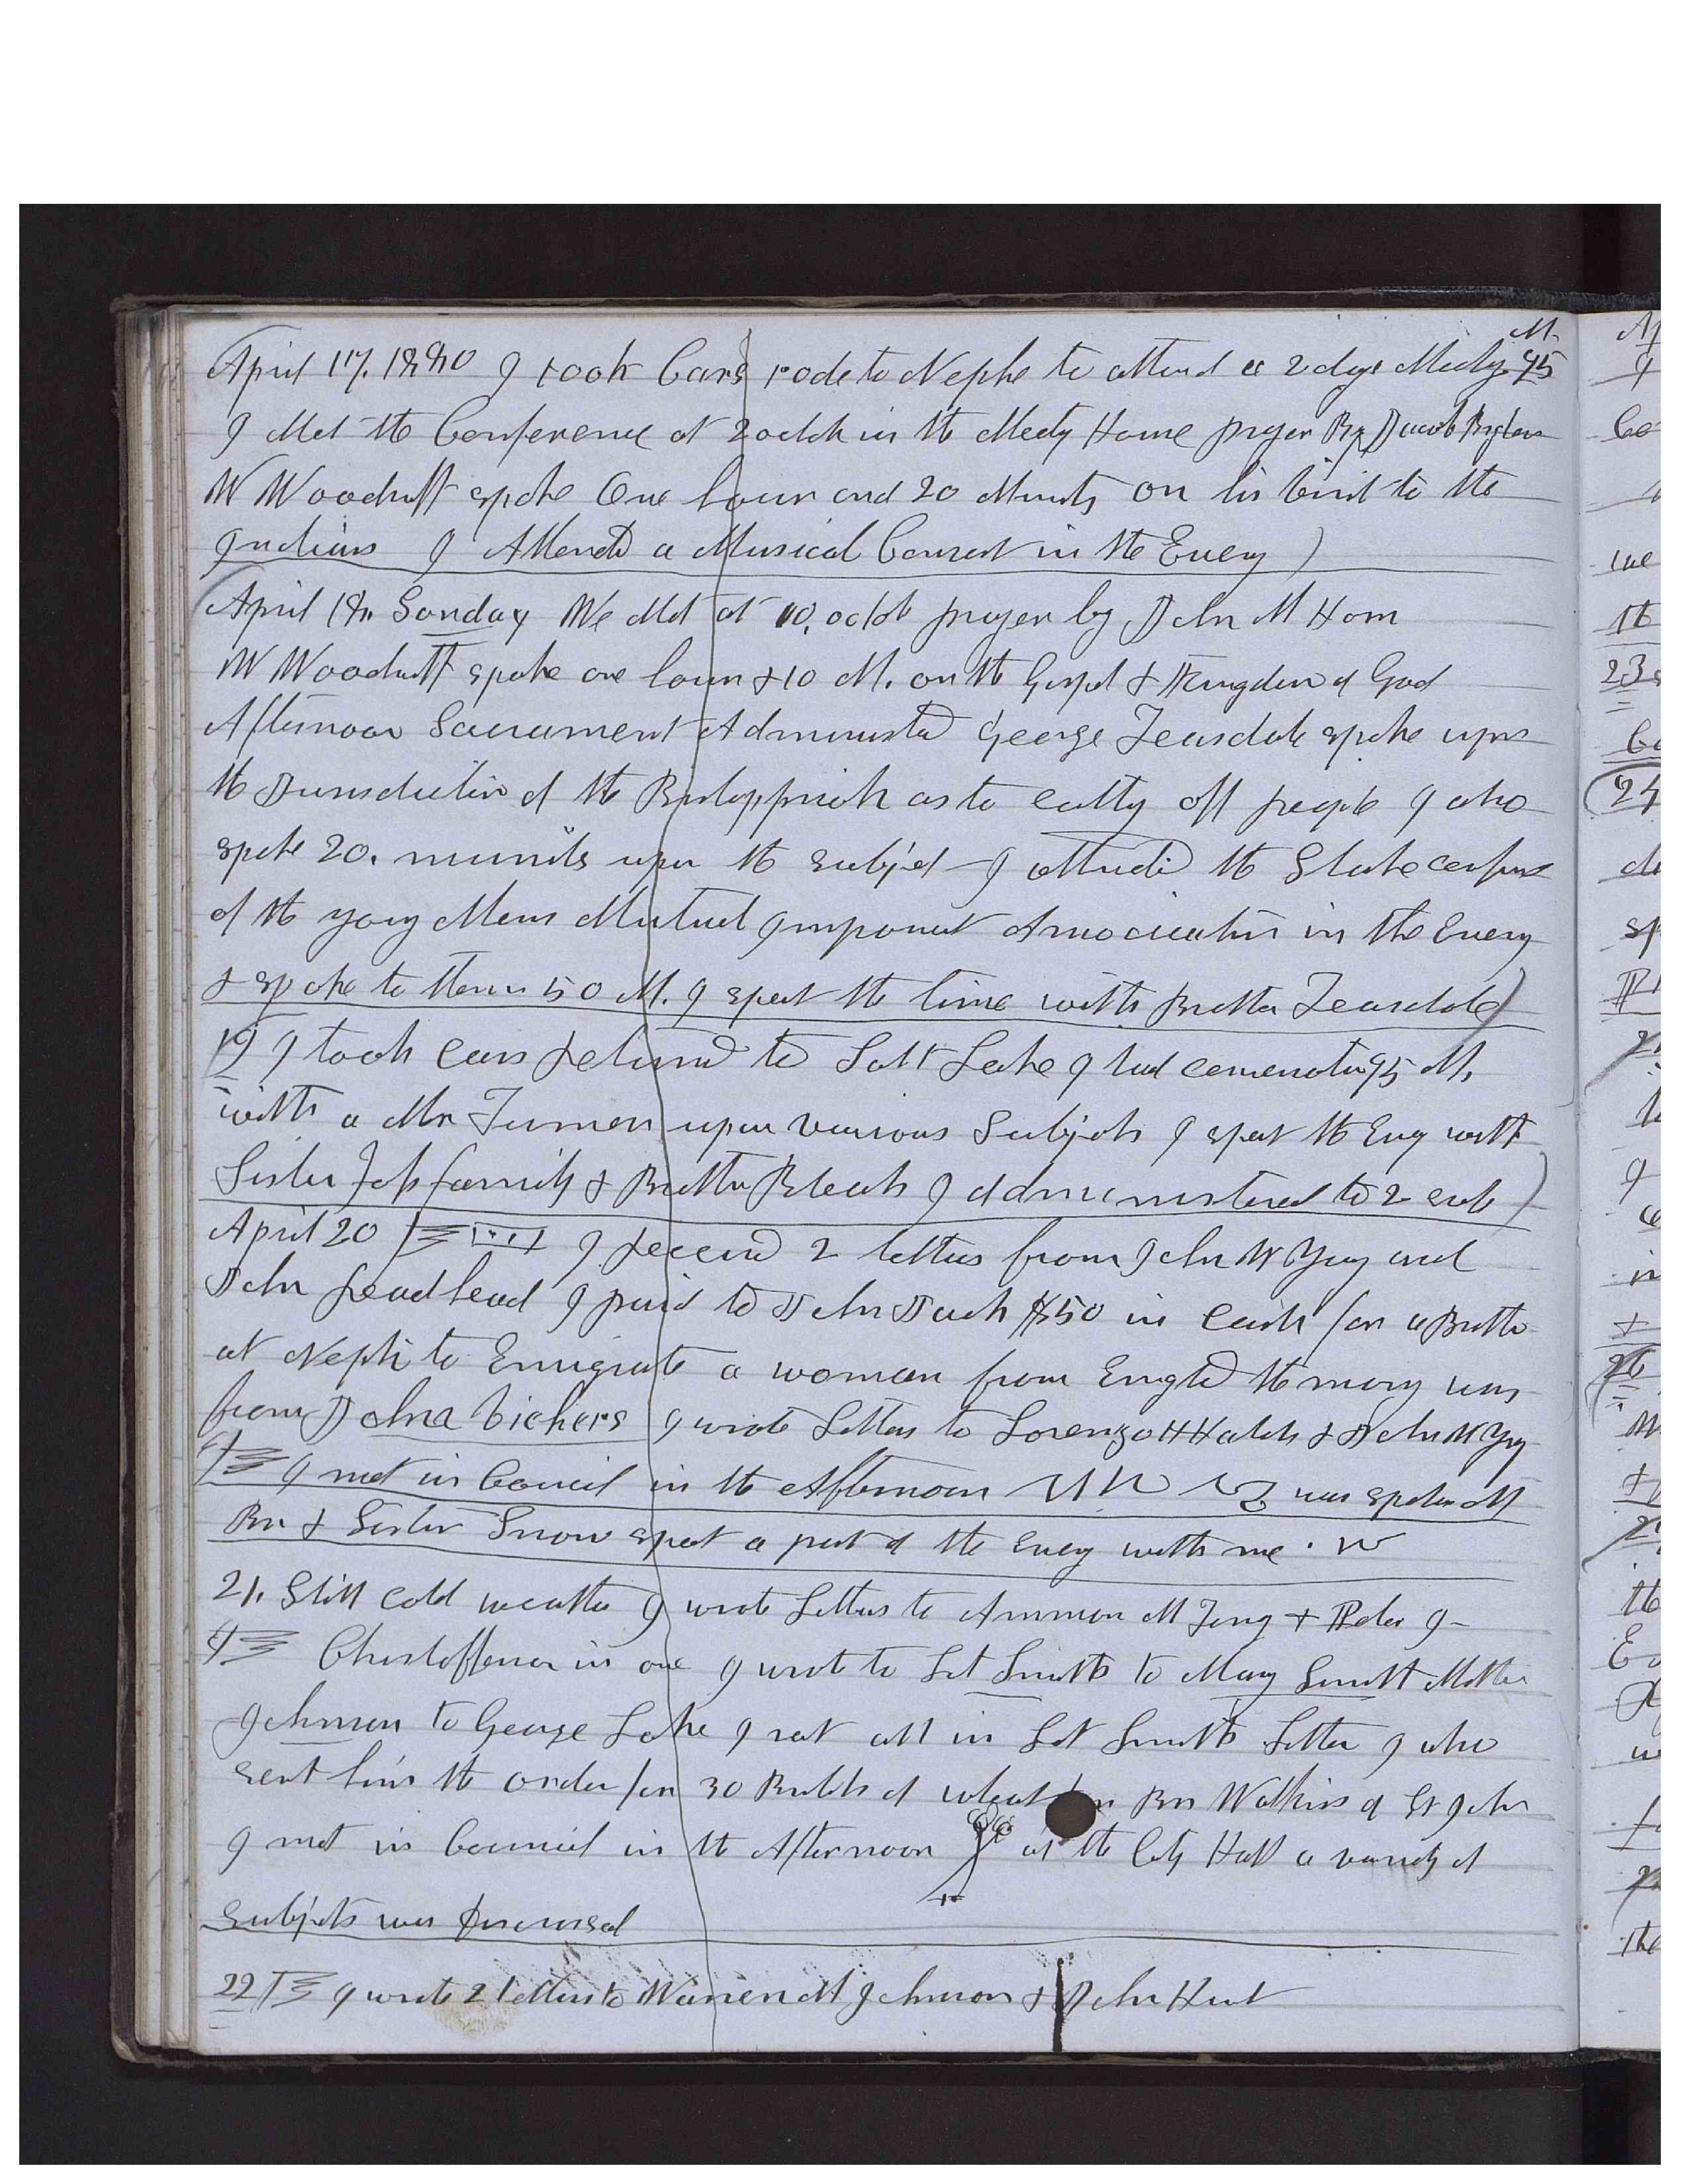 April 17. 1880 I took Cars rode to Nephi to attend a 2 days Meeting M. 95
I Met the Conference at 2 oclok in the Meetg House prayer By Jacob Bigler
W Woodruff spoke One hour and 20 Minuts on his visit to the
Indians I Attended a Musical Consert in the Eveng
April 18. Sunday We Met at 10, oclok prayer by John M Horn
W Woodruff spoke one hour & 10 M. on the Gospel & Kingdom of God
Afternoon Sacrament Administed George Teasdale spoke upon
the Jurisdiction of the Bishopprick as to cuttg off people I also
spoke 20. minuts upon the subjet I attended the Stake confers
of the Yong Mens Mutuel Improvent Association in the Eveng
& spoke to them 50 M. I spent the time with Brother Teasdale
19 I took cars & returnd to Salt Lake I had convesation 95 M.
with a Mr Turner upon various Subjects I spent the Eveg with
Sister family & Brother Bleak I administered to 2 sick
April 20 I received 2 letters from John W Yng and
John I paid to John Jack $50 in Cash for a Brother
at Nephi to Emigrate a woman from Engld the mony was
from John Vickers I wrote Letters to Lorenzo H Hatch & John W Yng
I met in Council in the Afternoon was spoken of
Br & Sister Snow spent a part of the Eveng with me.
21. Still cold weather I wrote Letters to Ammon M Teny & Peter I
Christofferson in one I wrote to Lot Smith to Mary Smith Mother
Johnson to George Lake I sent all in Lot Smiths Letter I also
sent him the order for 30 Bushels of wheat on Br Watkins of St John
I met in Council in the Afternoon at the City Hall a variety of
subjects was discussed
22 I wrote 2 letters to Warren M Johnson & John Hunt